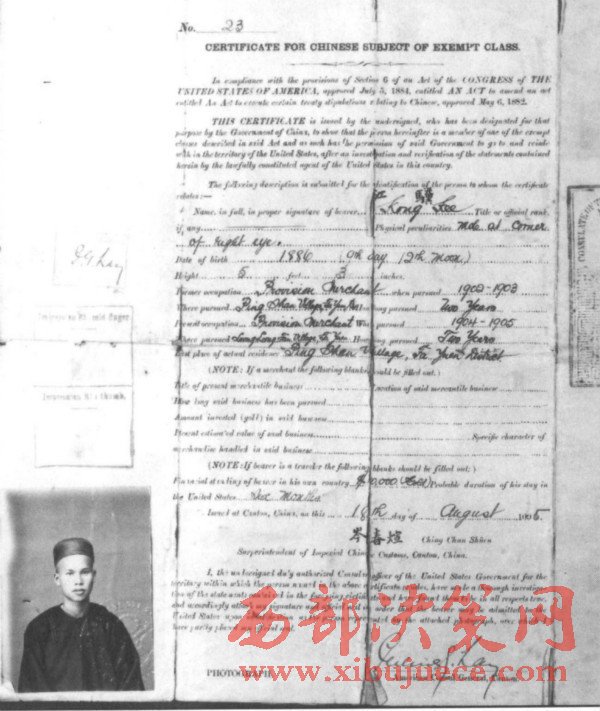 No. 23
CERTIFICATE FOR CHINESE SUBJECT OF EXEMPT CLASS.
In compliance with the provisions of Section 6 of an Act of the CONGRESS of THE
UNITED STATES OF AMERICA, approved July 5, 1884, entitled AN ACT to amend an act
entitled An Act to execute certain treaty stipulations relating to Chinese, approved May 6, 1882.
THIS CERTIFICATE is issued by the undersigned, who has been designated for that
purpose by the Government of China, to show that the person hereinafter is a member of one of the exempt
classes described in said Act and as such has the permission of said Government to go to and reside
within the territory of the United States, after an investigation and verification of the statements contained
herein by the lawfully constituted agent of the United States in this country.
The following description is submitted for the identification of the person to whom the certificate
relates:—
Name, in full, in proper signature of bearer Kong Lee Title or official rank,
if any Physical peculiarities Mole at corner
of right eye.
Date of birth 1886 (9th day, 12th Moon)
Height 5 feet 3 inches.
Former occupation Provision Merchant when pursued 1902-1903
Where pursued Ping Shan Village pursued Two Years
Present occupation Provision Merchant pursued 1904-1905
Where pursued pursued Two Years
Last place of actual residence Ping Shan Village, District
(NOTE: If a merchant the following blanks should be filled out:)
Title of present mercantile business Location of said mercantile business
How long said business has been pursued
Amount invested (gold) in said business
Present estimated value of said business Specific character of
merchandise handled in said business
(NOTE: If bearer is a traveler the following blanks should be filled out:)
Financial standing of bearer in his own country $10,000 Probable duration of his stay in
the United States Six Months
Issued at Canton, China, on this 18th day of August 1905
岑春煊 Ching Chan Shüen
Superintendent of Imperial Chinese Customs, Canton, China.
I, the undersigned duly authorized Consular officer of the United States Government for the
territory within which the person named in the above certificate resides, have made a thorough investiga-
tion of the statements contained in the foregoing certificate in all respects true,
and accordingly attach my signature and official seal in order that the bearer may be admitted
United States upon the attached photograph, over which I
have partly placed my official seal.
PHOTOGRAPH
Consul General, Canton
西部决策网
www.xibujuece.com